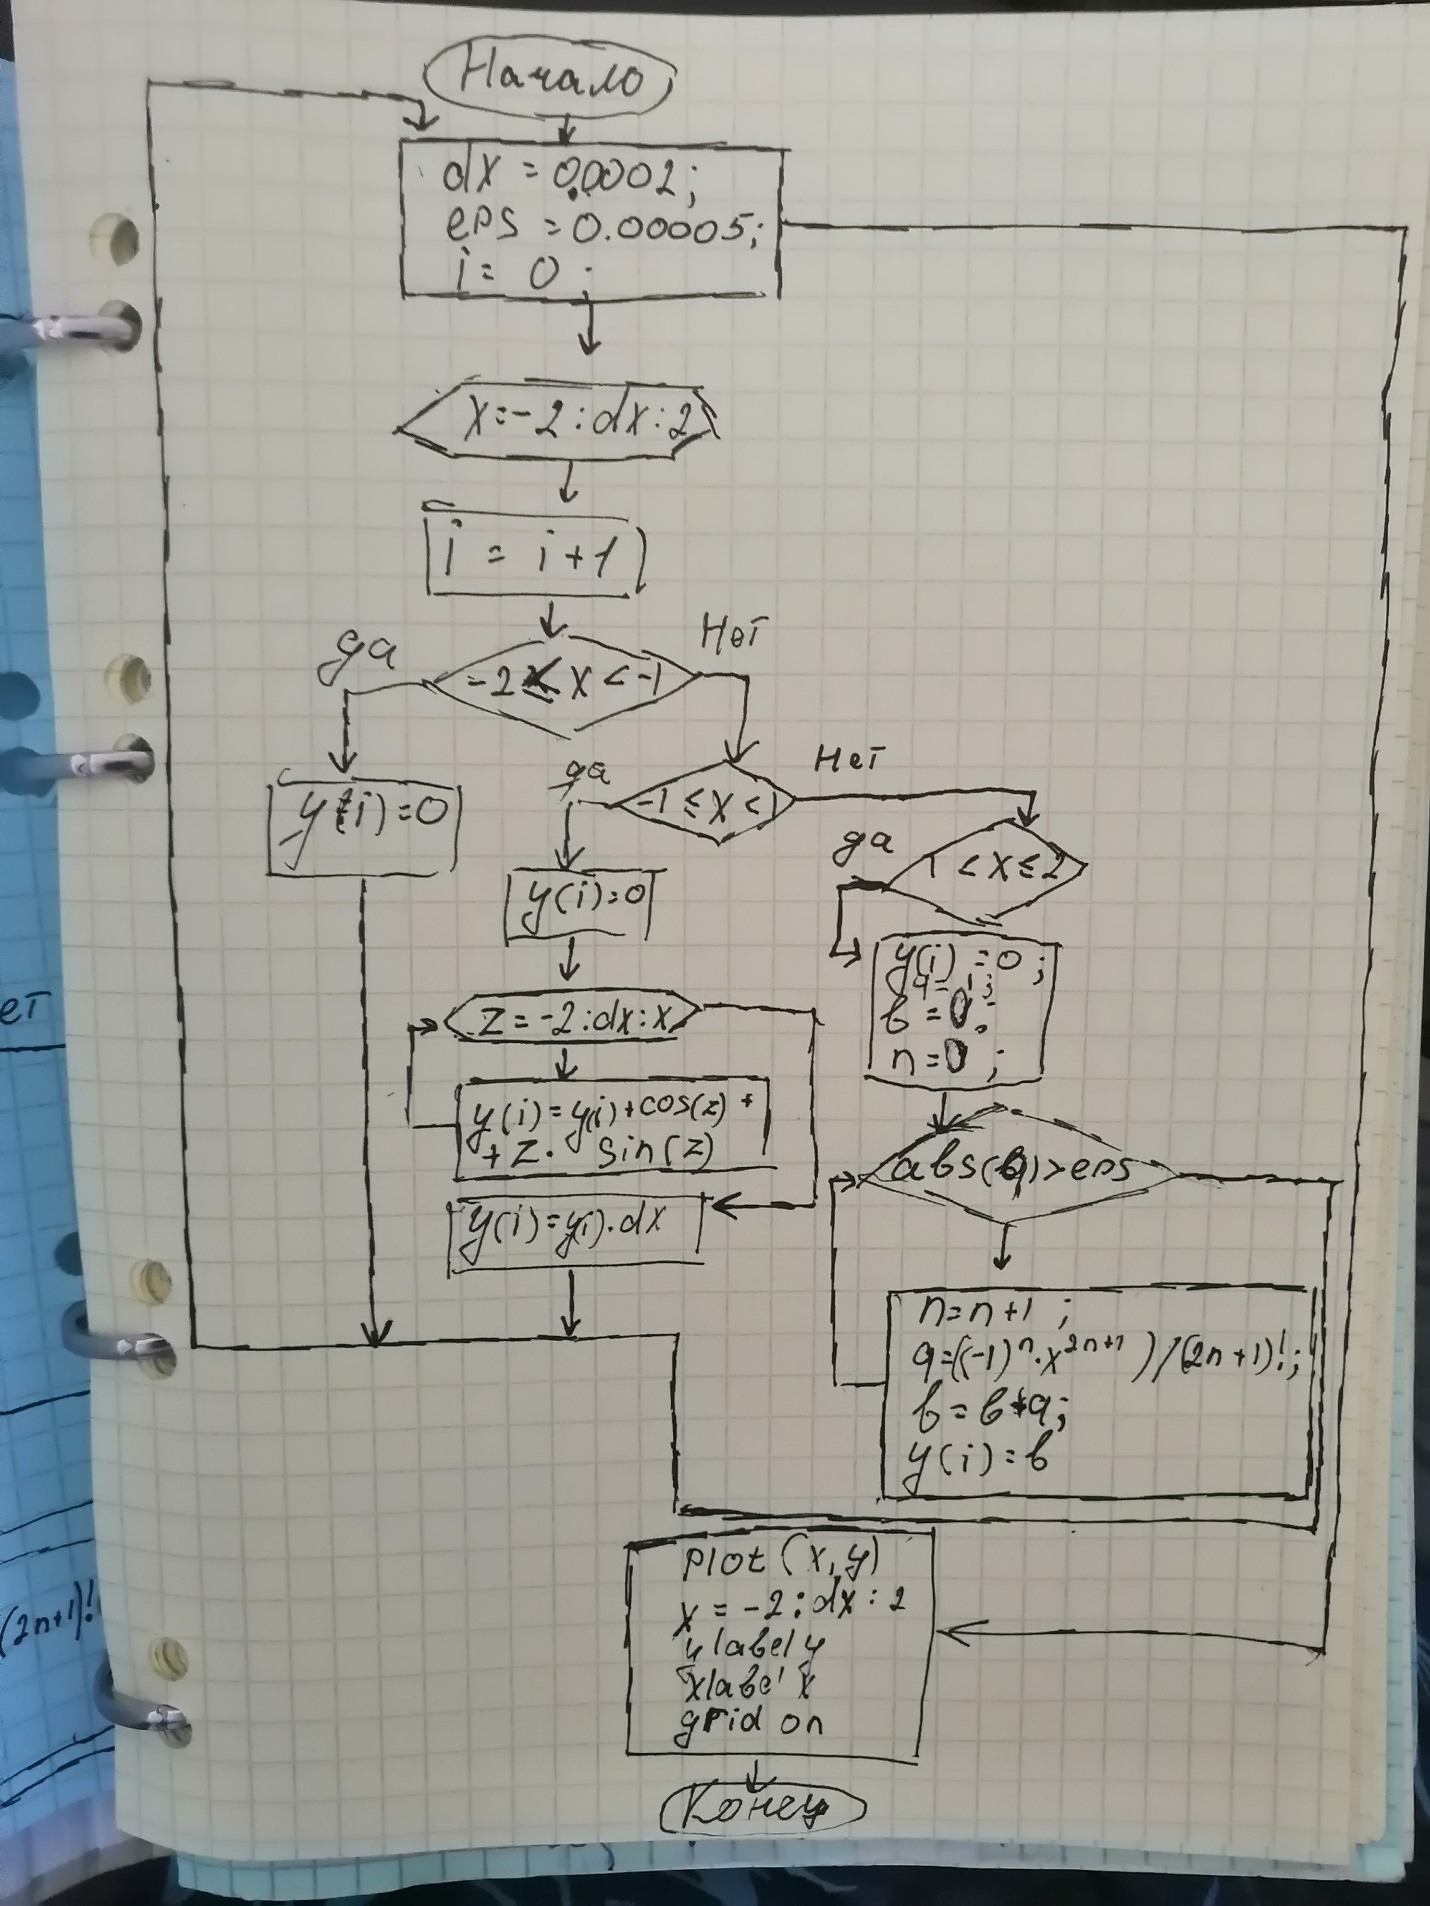 Начало
dx = 0.0002;
eps = 0.00005;
i = 0;
x = -2 : dx : 2
i = i + 1
да
Нет
-2 ≤ x < -1
y(i) = 0
да
Нет
-1 ≤ x < 1
y(i) = 0
да
1 < x ≤ 2
y(i) = 0;
a = 1;
b = 0;
n = 0;
z = -2 : dx : x
y(i) = y(i) + cos(z) +
+ z · sin(z)
y(i) = y(i) · dx
abs(a) > eps
n = n + 1;
a = ((-1)^n · x^{2n+1}) / (2n + 1)!;
b = b + a;
y(i) = b
plot(x, y)
x = -2 : dx : 2
ylabel y
xlabel x
grid on
Конец
ет
(2n+1)!